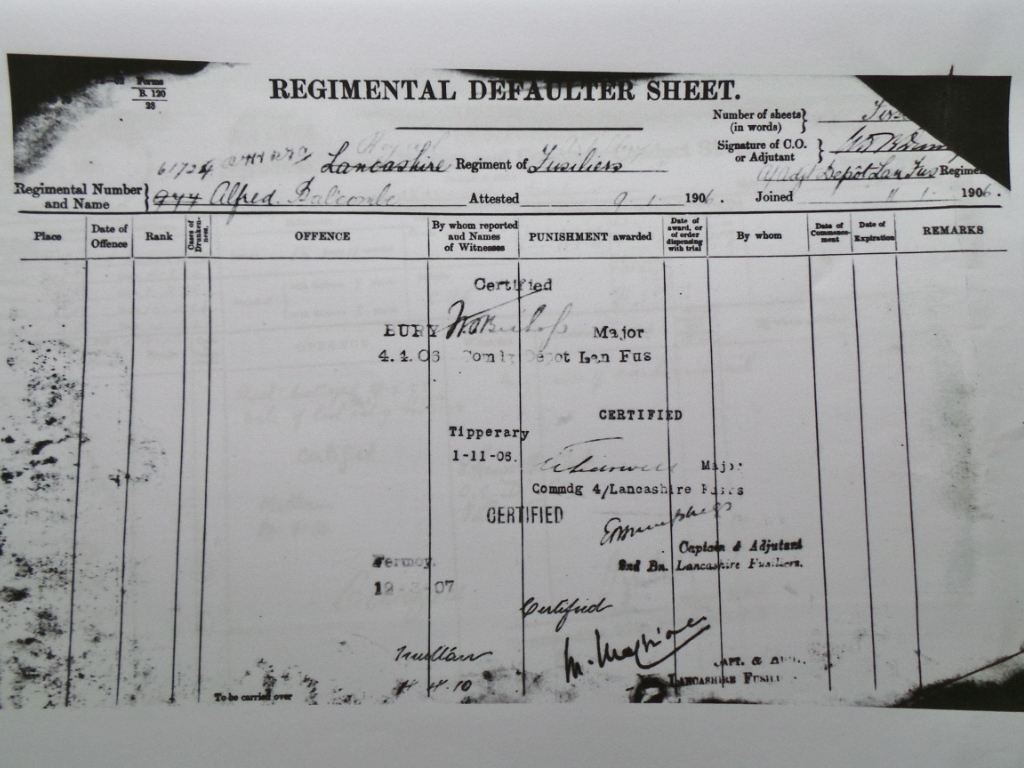 Forms
B. 120
28
REGIMENTAL DEFAULTER SHEET.
Number of sheets (in words)
Signature of C.O. or Adjutant
Lancashire Regiment of Fusiliers
Depot Lan Fus Regiment
Regimental Number and Name
Alfred Balcombe Attested 9 1 1906. Joined 11 1 1906.
Place
Date of Offence
Rank
Cases of Drunkenness.
OFFENCE
By whom reported and Names of Witnesses
PUNISHMENT awarded
Date of award, or of order dispensing with trial
By whom
Date of Commencement
Date of Expiration
REMARKS
Certified
BURY W. Bishop Major
4.4.06 Depot Lan Fus
CERTIFIED
Tipperary
1-11-06. Major
Commdg 4/Lancashire Fusrs
CERTIFIED
Captain & Adjutant
2nd Bn. Lancashire Fusiliers.
Fermoy.
07
Certified
CAPT. &
LANCASHIRE FUSIL
To be carried over